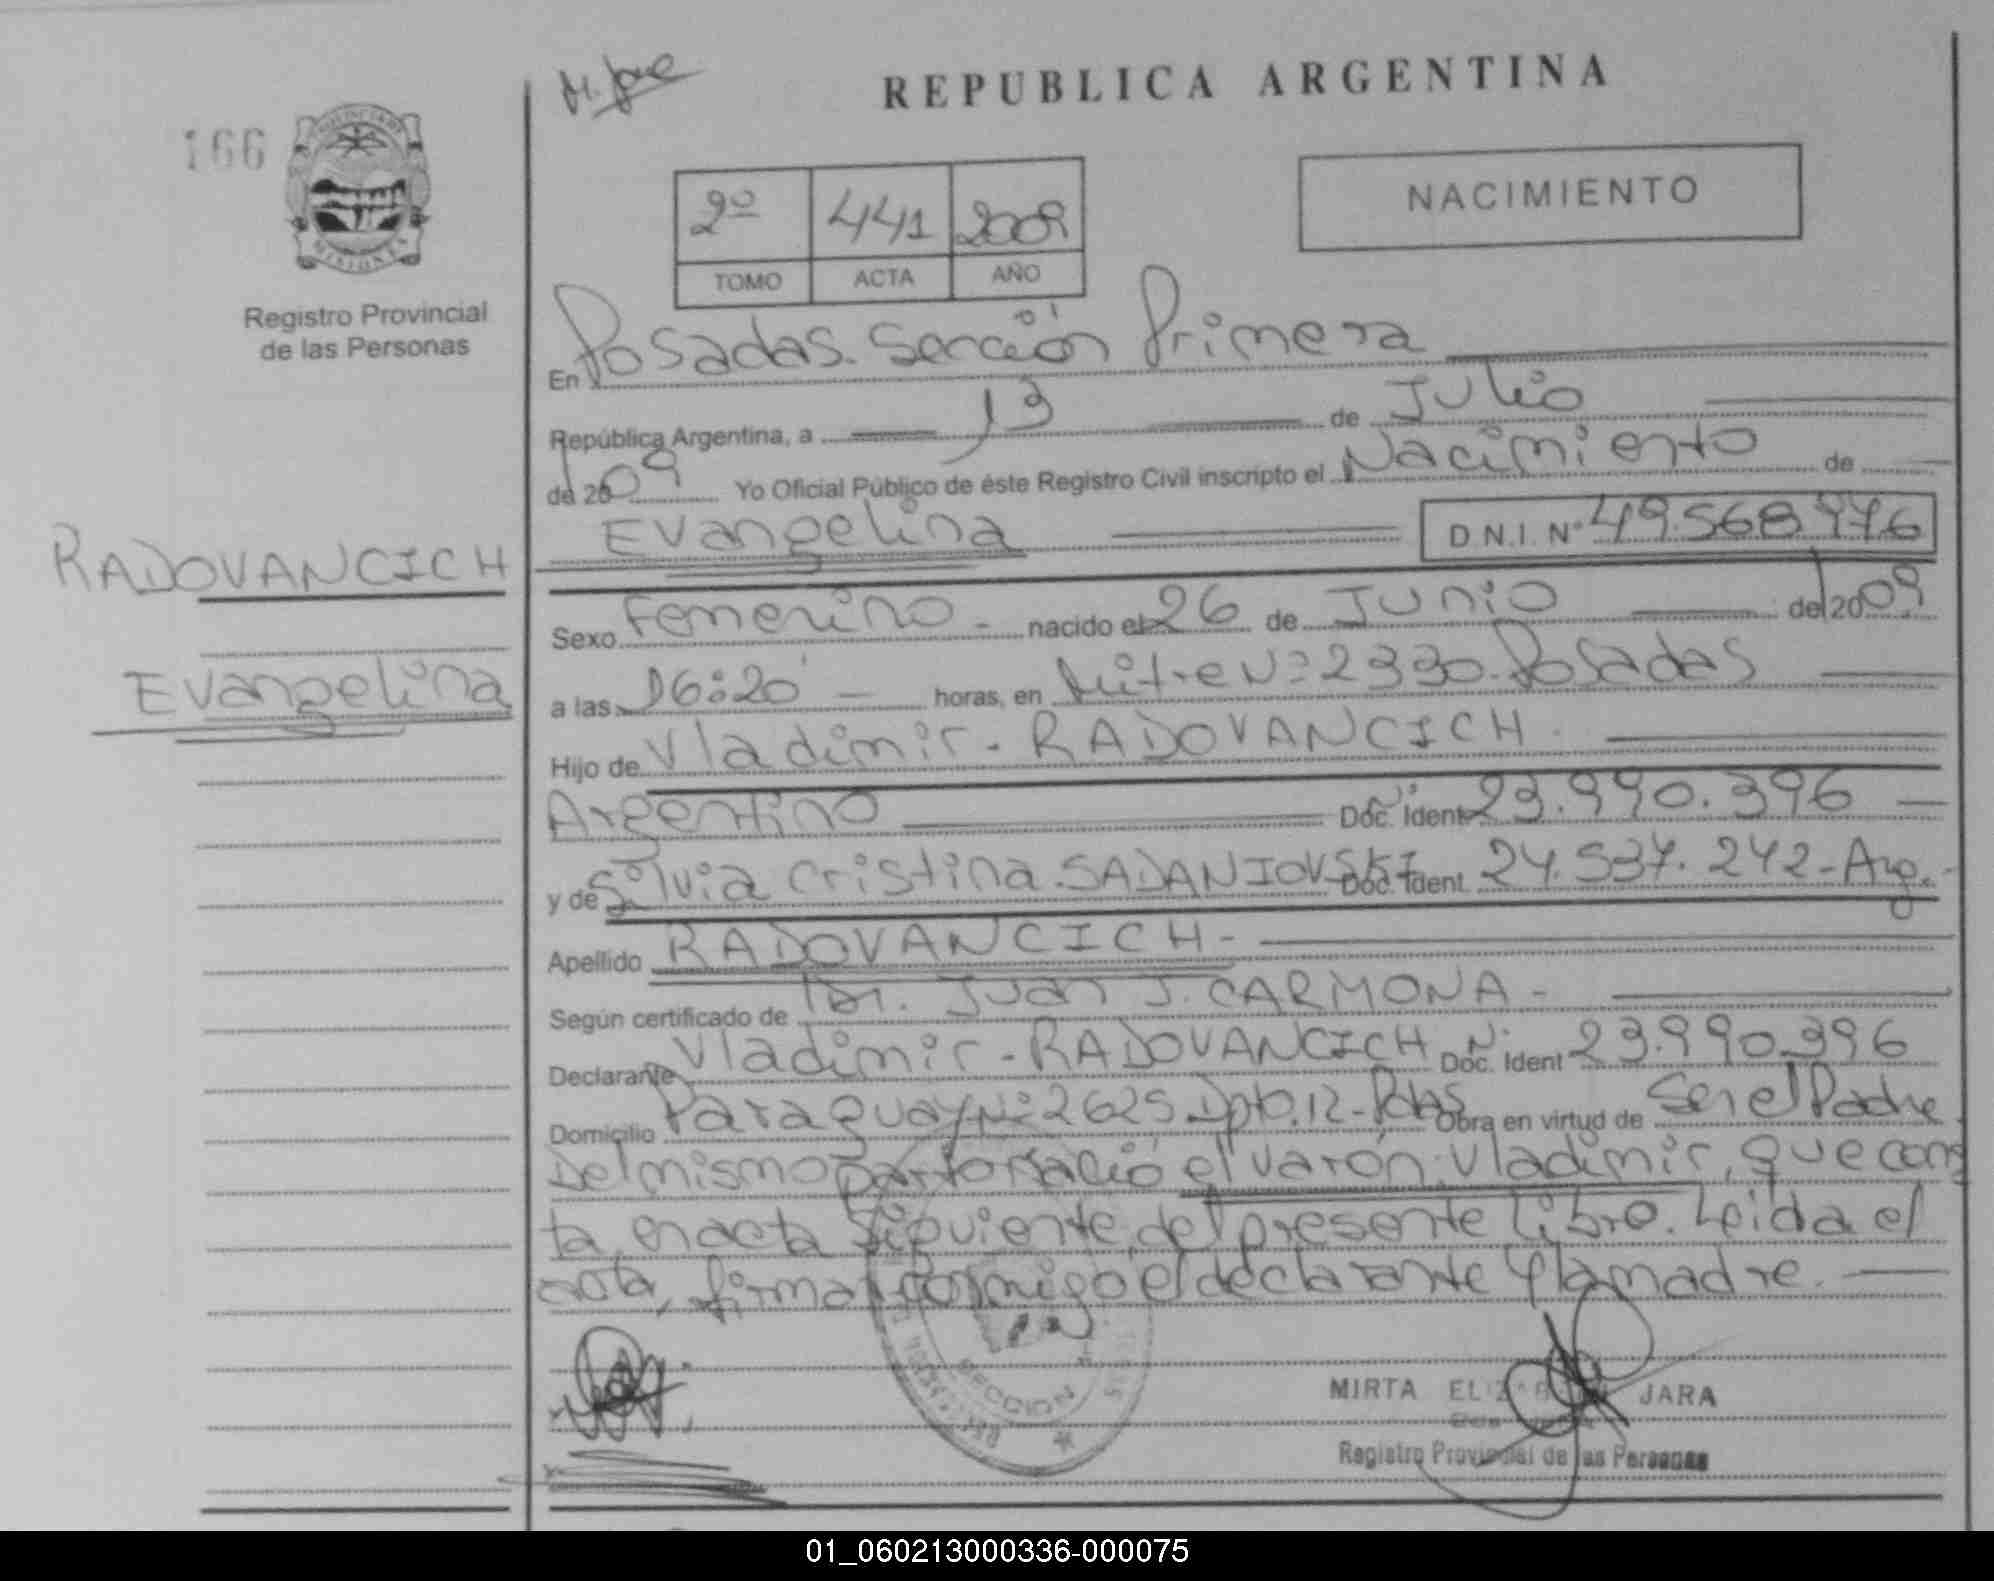 M. José
REPUBLICA ARGENTINA
166
NACIMIENTO
2º 441 2009
TOMO ACTA AÑO
MISIONES
Registro Provincial
de las Personas
En Posadas. Sección Primera
República Argentina, a 13 de Julio
de 2009 Yo Oficial Público de éste Registro Civil inscripto el Nacimiento de
Evangelina D.N.I. Nº 49.568.976
RADOVANCICH
Evangelina
Sexo Femenino - nacido el 26 de Junio de 2009
a las 16:20 - horas, en Mitre Nº 2330. Posadas
Hijo de Vladimir - RADOVANCICH.
Argentino Doc. Ident 23.990.396
y de Silvia Cristina. SADANIOVSKI Doc. Ident 24.537.242 - Arg.
Apellido RADOVANCICH -
Según certificado de Dr. Juan J. CARMONA -
Declarante Vladimir - RADOVANCICH Doc. Ident 23.990.396
Domicilio Paraguay Nº 2625 Dpto. 12 - Pdas Obra en virtud de Ser el Padre
Del mismo parto nació el varón: Vladimir, que cons
ta en acta siguiente, del presente Libro. Leida el
acta, firman conmigo el declarante y la madre.
SECCION
MIRTA ELIZABETH JARA
Registro Provincial de las Personas
01_060213000336-000075